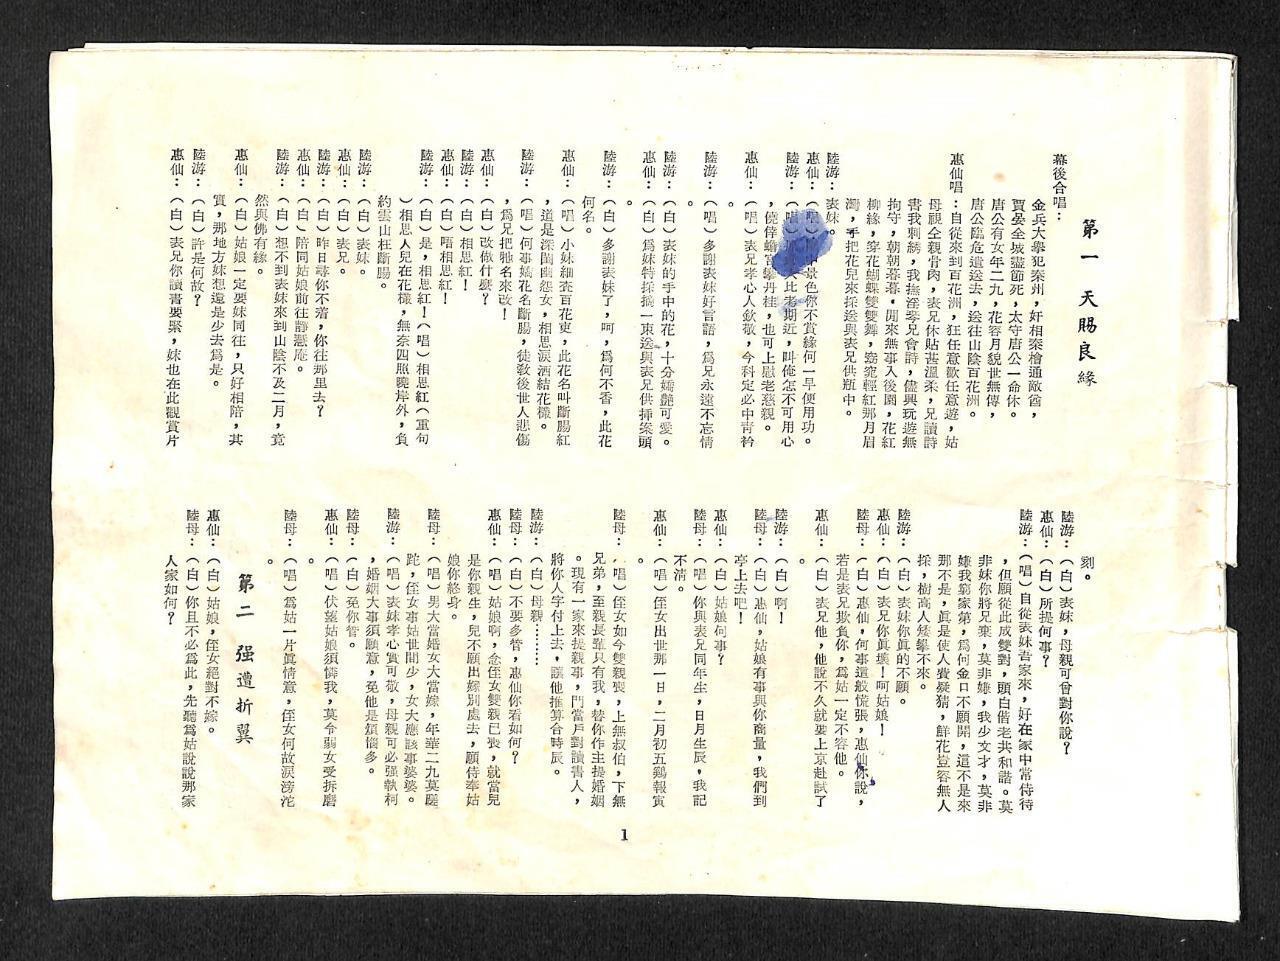 第一　天賜良緣
幕後合唱：
金兵大舉犯秦州，奸相秦檜通敵酋，
賈晏全城盡節死，太守唐公一命休。
唐公有女年二九，花容月貌世無儔，
唐公臨危遣送去，送往山陰百花洲。
惠仙唱：自從來到百花洲，狂任意歡任意遊，姑
母視全親骨肉，表兄休貼甚溫柔，兄讀詩
書我刺綉，我撫淫琴兄會詩，儘興玩遊無
拘守，朝朝暮暮，閒來無事入後園，花紅
柳綠，穿花蝴蝶雙雙舞，窈窕輕紅那月眉
灣，手把花兒來採送與表兄供瓶中。
陸游：表妹。
惠仙：（唱）園中景色你不賞緣何一早便用功。
陸游：（唱）大比老期近，叫俺怎不可用心
，僥倖蟾宮攀丹桂，也可上慰老慈親。
惠仙：（唱）表兄孝心人欽敬，今科定必中青衿
。
陸游：（唱）多謝表妹好言語，爲兄永遠不忘情
。
陸游：（白）表妹的手中的花，十分嬌艷可愛。
惠仙：（白）爲妹特採摘一束送與表兄供挿案頭
。
陸游：（白）多謝表妹了，呵，爲何不香，此花
何名。
惠仙：（唱）小妹細查百花吏，此花名叫斷腸紅
，道是深閨幽怨女，相思淚洒結花欉。
陸游：（唱）何事嬌花名斷腸，徒敎後世人悲傷
，爲兄把牠名來改！
惠仙：（白）改做什麼？
陸游：（白）相思紅！
惠仙：（白）唔相思紅！
陸游：（白）是，相思紅！（唱）相思紅（重句
）相思人兒在花欉，無奈四照曉岸外，負
約雲山枉斷腸。
陸游：（白）表妹。
惠仙：（白）表兄。
陸游：（白）昨日尋你不着，你往那里去？
惠仙：（白）陪同姑娘前往靜慝庵。
陸游：（白）想不到表妹來到山陰不及二月，竟
然與佛有緣。
惠仙：（白）姑娘一定要妹同往，只好相陪，其
實，那地方妹想還是少去爲是。
陸游：（白）許是何故？
惠仙：（白）表兄你讀書要緊，妹也在此觀賞片
刻。
陸游：（白）表妹，母親可曾對你說？
惠仙：（白）所提何事？
陸游：（唱）自從表妹吾家來，好在家中常侍待
，但願從此成雙對，頭白偕老共和諧。莫
非妹你將兄棄，莫非嫌，我少文才，莫非
嫌我窮家第，爲何金口不願開，這不是來
那不是，眞是使人費疑猜，鮮花豈容無人
採，樹高人矮攀不來。
陸游：（白）表妹你眞的不願。
惠仙：（白）表兄你眞壞！呵姑娘！
陸母：（白）惠仙，何事這般慌張，惠仙你說，
若是表兄欺負你，爲姑一定不容他。
惠仙：（白）表兄他，他說不久就要上京赴試了
。
陸游：（白）啊！
陸母：（白）惠仙，姑娘有事與你商量，我們到
亭上去吧！
惠仙：（白）姑娘何事？
陸母：（唱）你與表兄同年生，日月生辰，我記
不淸。
惠仙：（唱）侄女出世那一日，二月初五鷄報寅
。
陸母：（唱）侄女如今雙親喪，上無叔伯，下無
兄弟，至親長輩只有我，替你作主提婚姻
。現有一家來提親事，門當戶對讀書人，
將你人字付上去，讓他推算合時辰。
陸游：（白）母親……
陸母：（白）不要多管，惠仙你看如何？
惠仙：（唱）姑娘啊，念侄女雙親已喪，就當兒
是你親生，兒不願出嫁別處去，願侍奉姑
娘你終身。
陸母：（唱）男大當婚女大當嫁，年華二九莫蹉
跎，侄女事姑世間少，女大應該事婆婆。
陸游：（唱）表妹孝心實可敬，母親可必强執柯
，婚姻大事須願意，免他是煩惱多。
陸母：（白）免你管。
惠仙：（唱）伏望姑娘須憐我，莫令弱女受折磨
。
陸母：（唱）爲姑一片眞情意，侄女何故淚滂沱
。
第二　强遭折翼
惠仙：（白）姑娘，侄女絕對不嫁。
陸母：（白）你且不必爲此，先聽爲姑說說那家
人家如何？
1